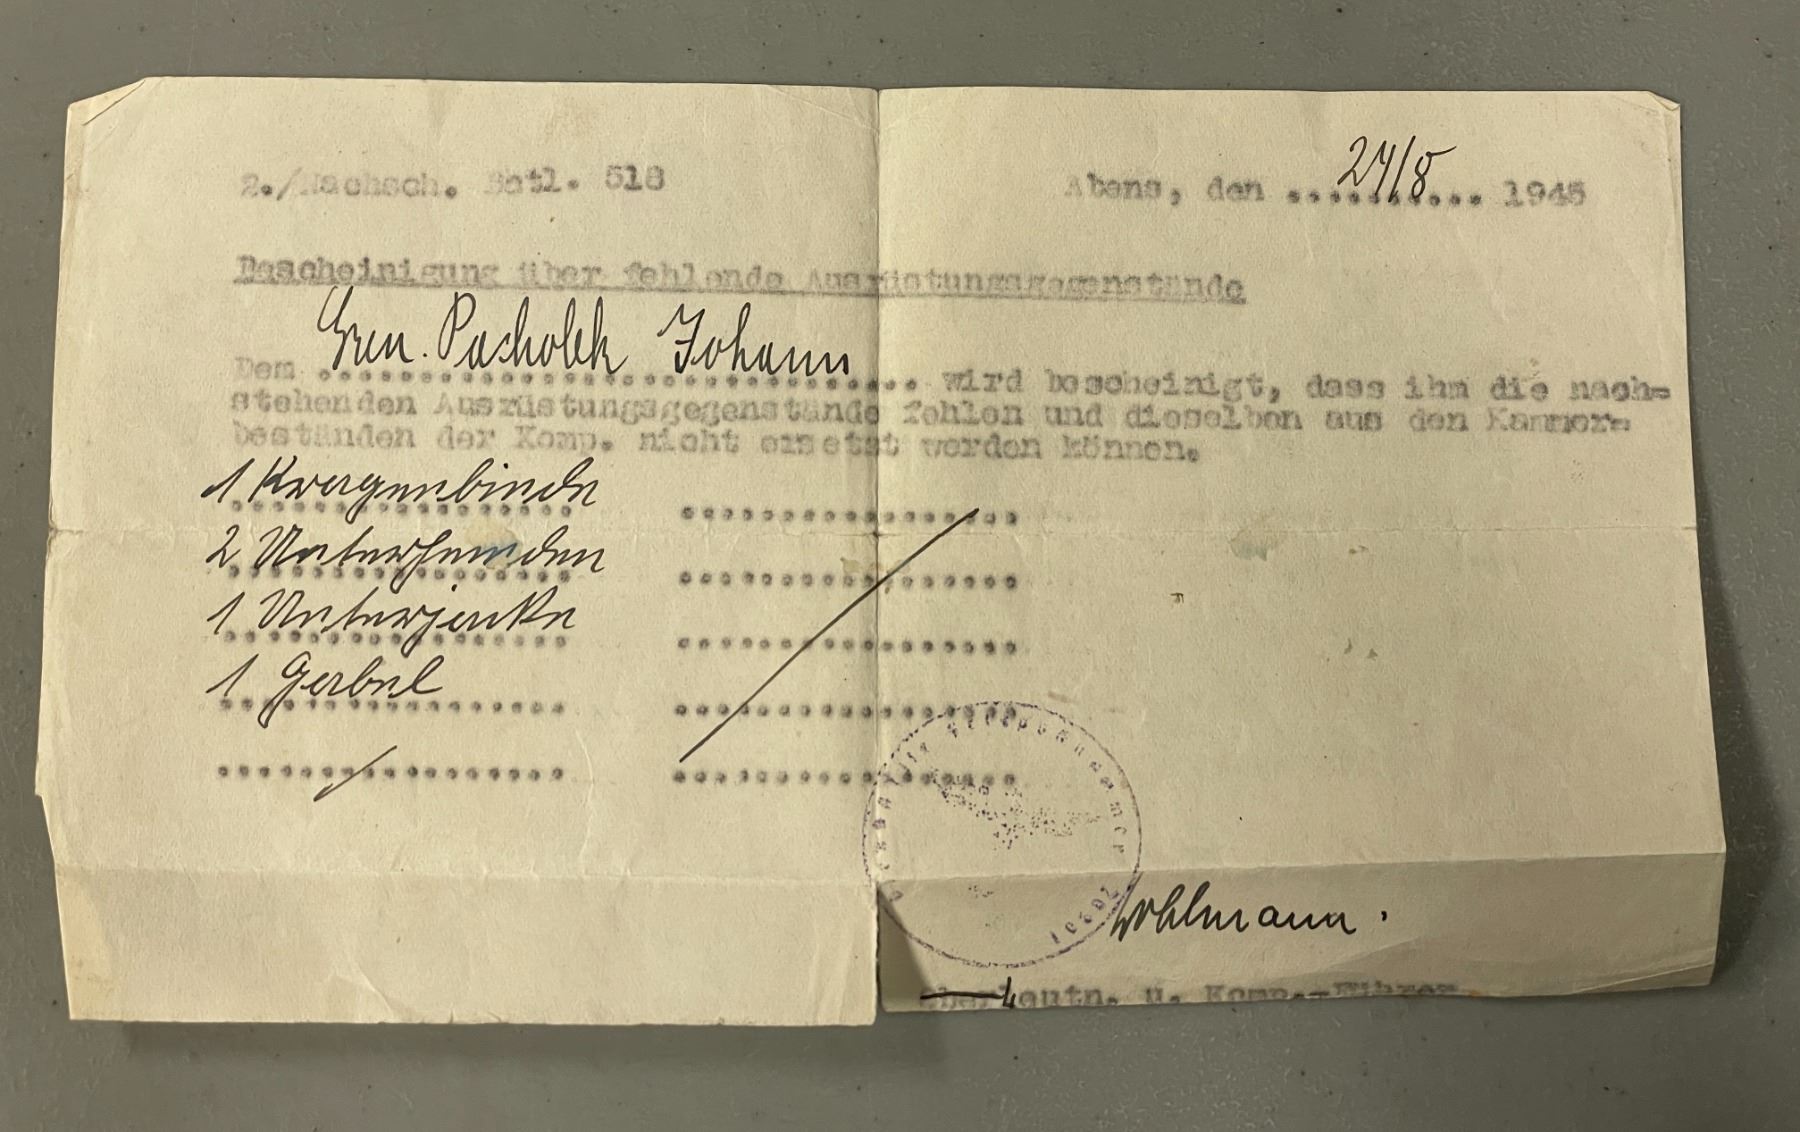 2./Nachsch. Batl. 518
Abens, den 24/5 1945
Bescheinigung über fehlende Ausrüstungsgegenstände
Gren. Pacholek Johann
Dem .............................. wird bescheinigt, dass ihm die nach=
stehenden Ausrüstungsgegenstände fehlen und dieselben aus den Kammer=
beständen der Komp. nicht ersetzt werden können.
1 Kragenbinde
2 Unterhemden
1 Unterjacke
1 Gabel
Dienststelle Feldpostnummer
Wohlmann.
Oberleutn. u. Komp.-Führer